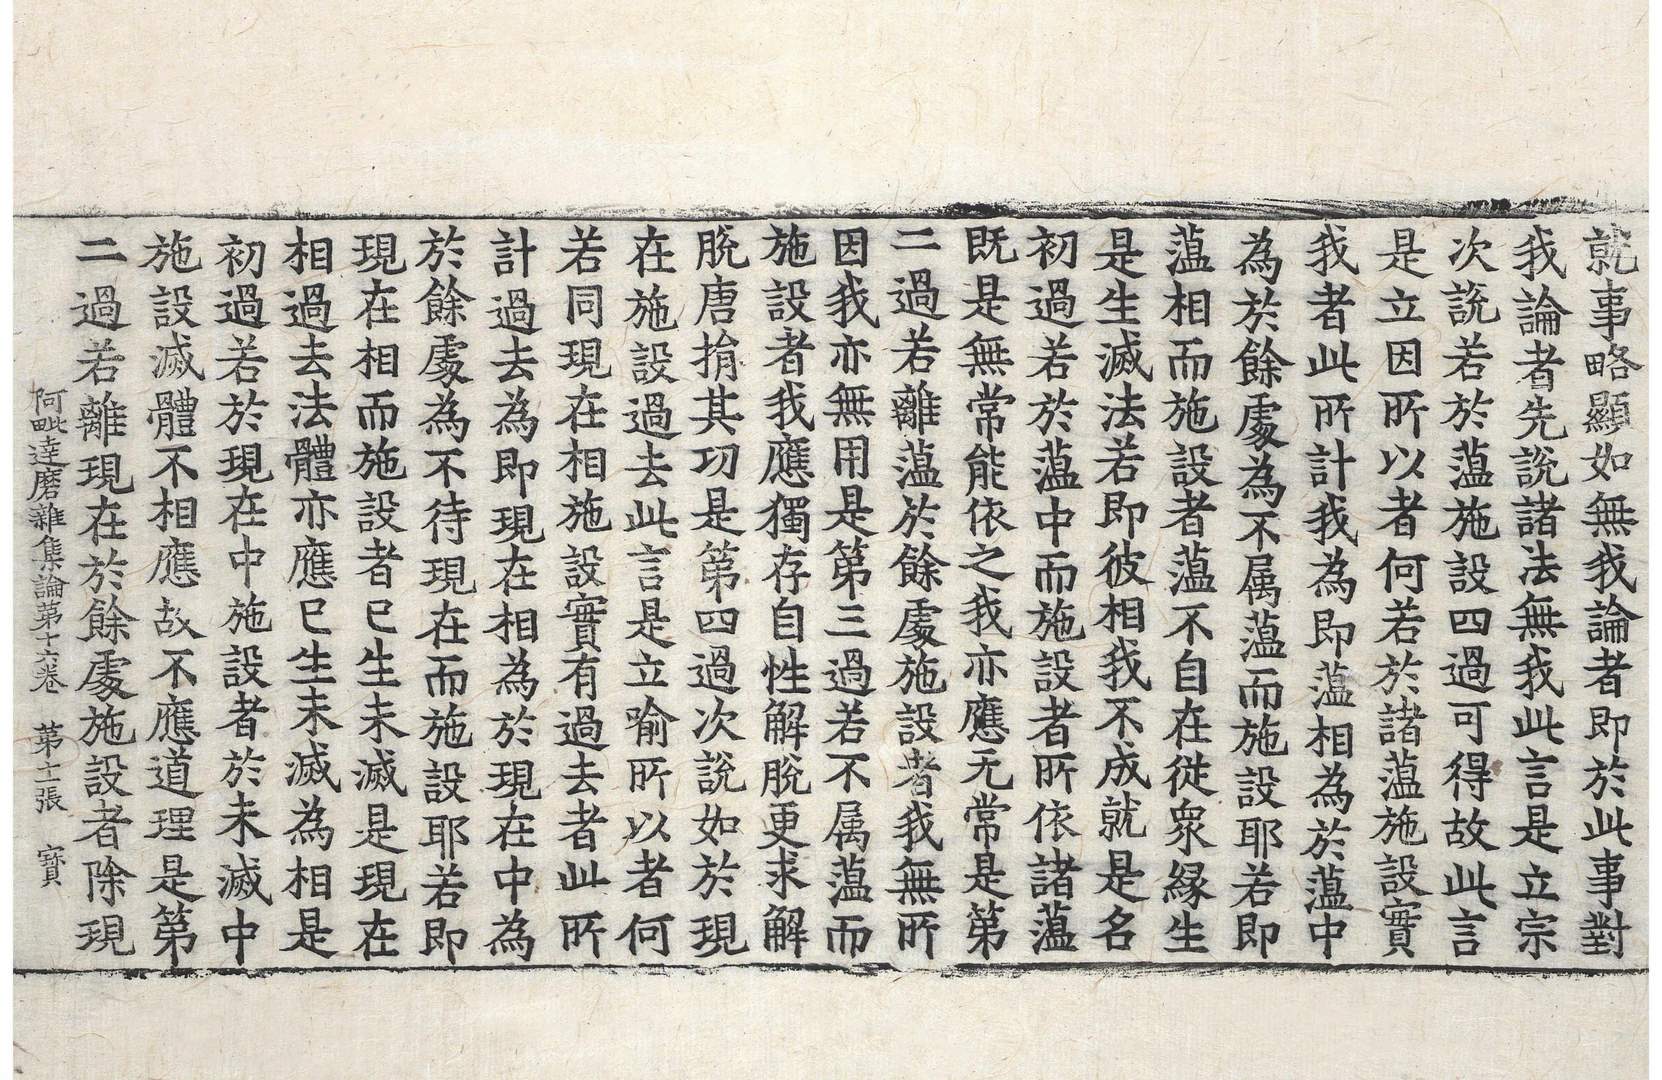 就事略顯如無我論者即於此事對
我論者先說諸法無我此言是立宗
次說若於薀施設四過可得故此言
是立因所以者何若於諸薀施設實
我者此所計我為即薀相為於薀中
為於餘處為不属薀而施設耶若即
薀相而施設者薀不自在從衆縁生
是生滅法若即彼相我不成就是名
初過若於薀中而施設者所依諸薀
既是無常能依之我亦應无常是第
二過若離薀於餘處施設者我無所
因我亦無用是第三過若不属薀而
施設者我應獨存自性解脫更求解
脫唐捐其功是第四過次說如於現
在施設過去此言是立喻所以者何
若同現在相施設實有過去者此所
計過去為即現在相為於現在中為
於餘處為不待現在而施設耶若即
現在相而施設者已生未滅是現在
相過去法體亦應已生未滅為相是
初過若於現在中施設者於未滅中
施設滅體不相應故不應道理是第
二過若離現在於餘處施設者除現
阿毗達磨雜集論第十六卷 第十一張 寳